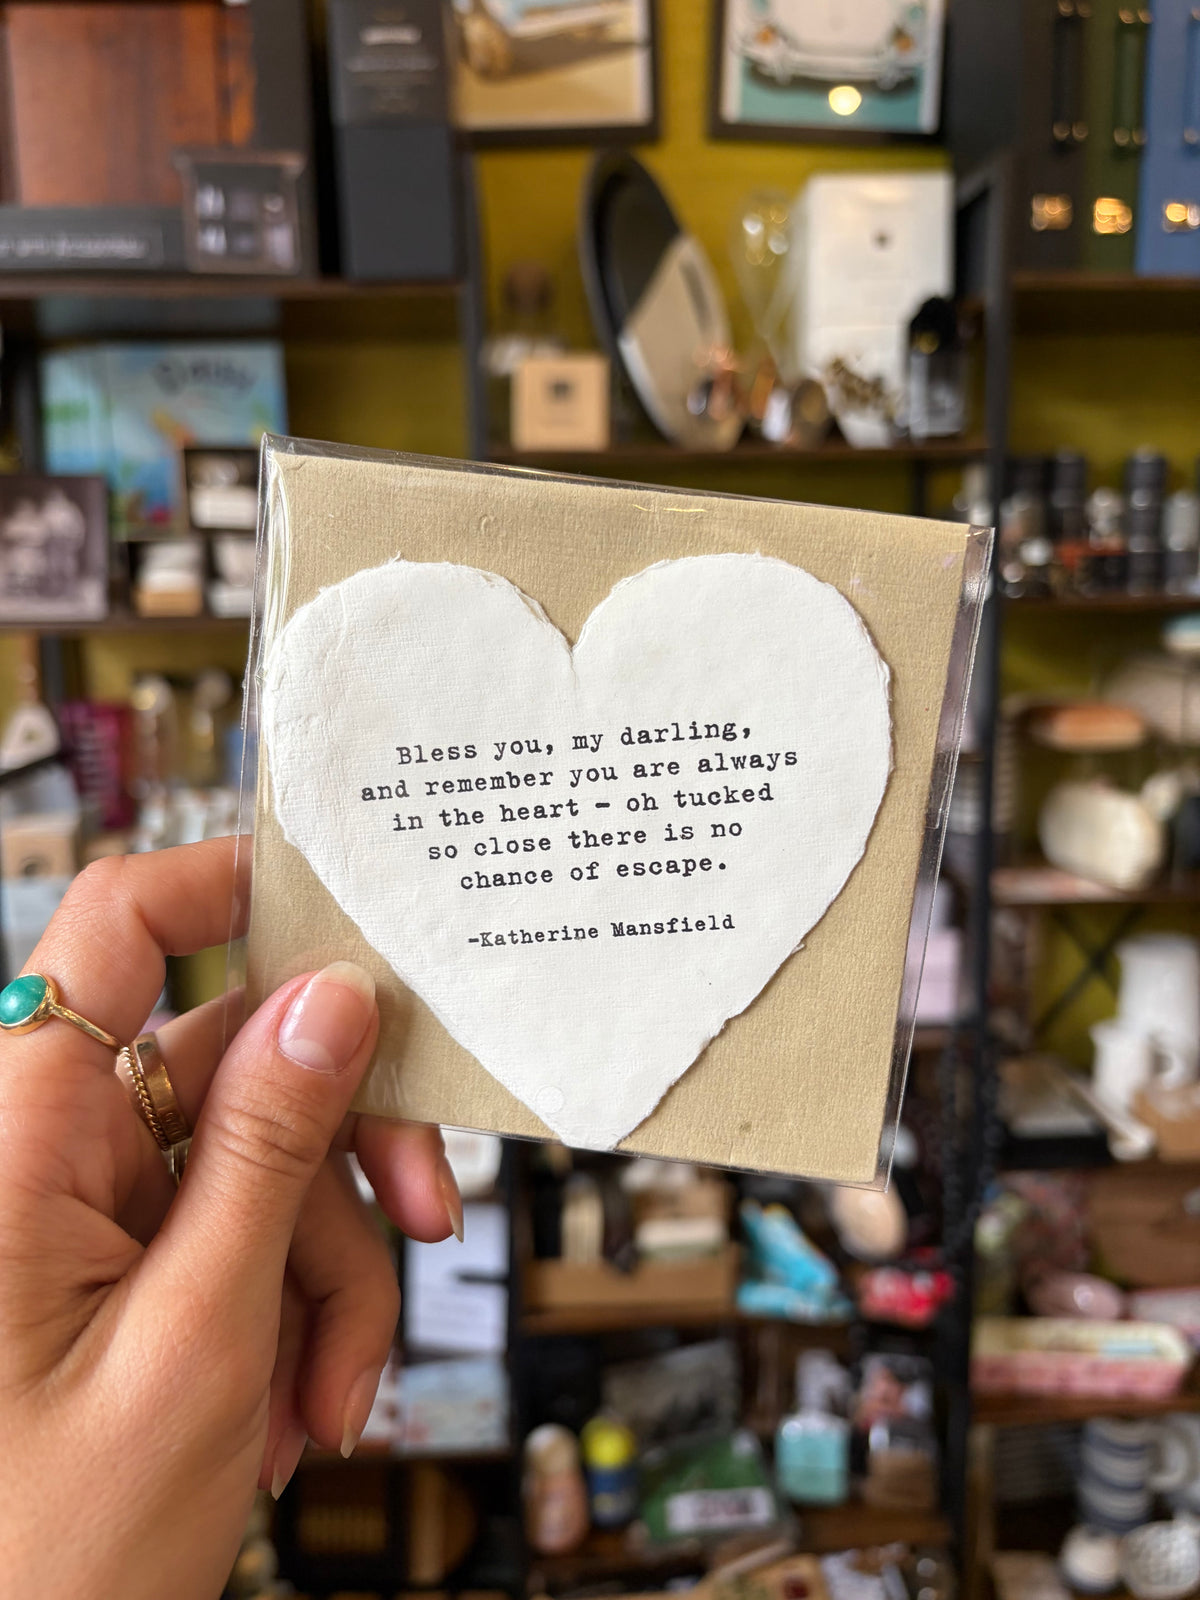 Bless you, my darling,
and remember you are always
in the heart – oh tucked
so close there is no
chance of escape.
-Katherine Mansfield